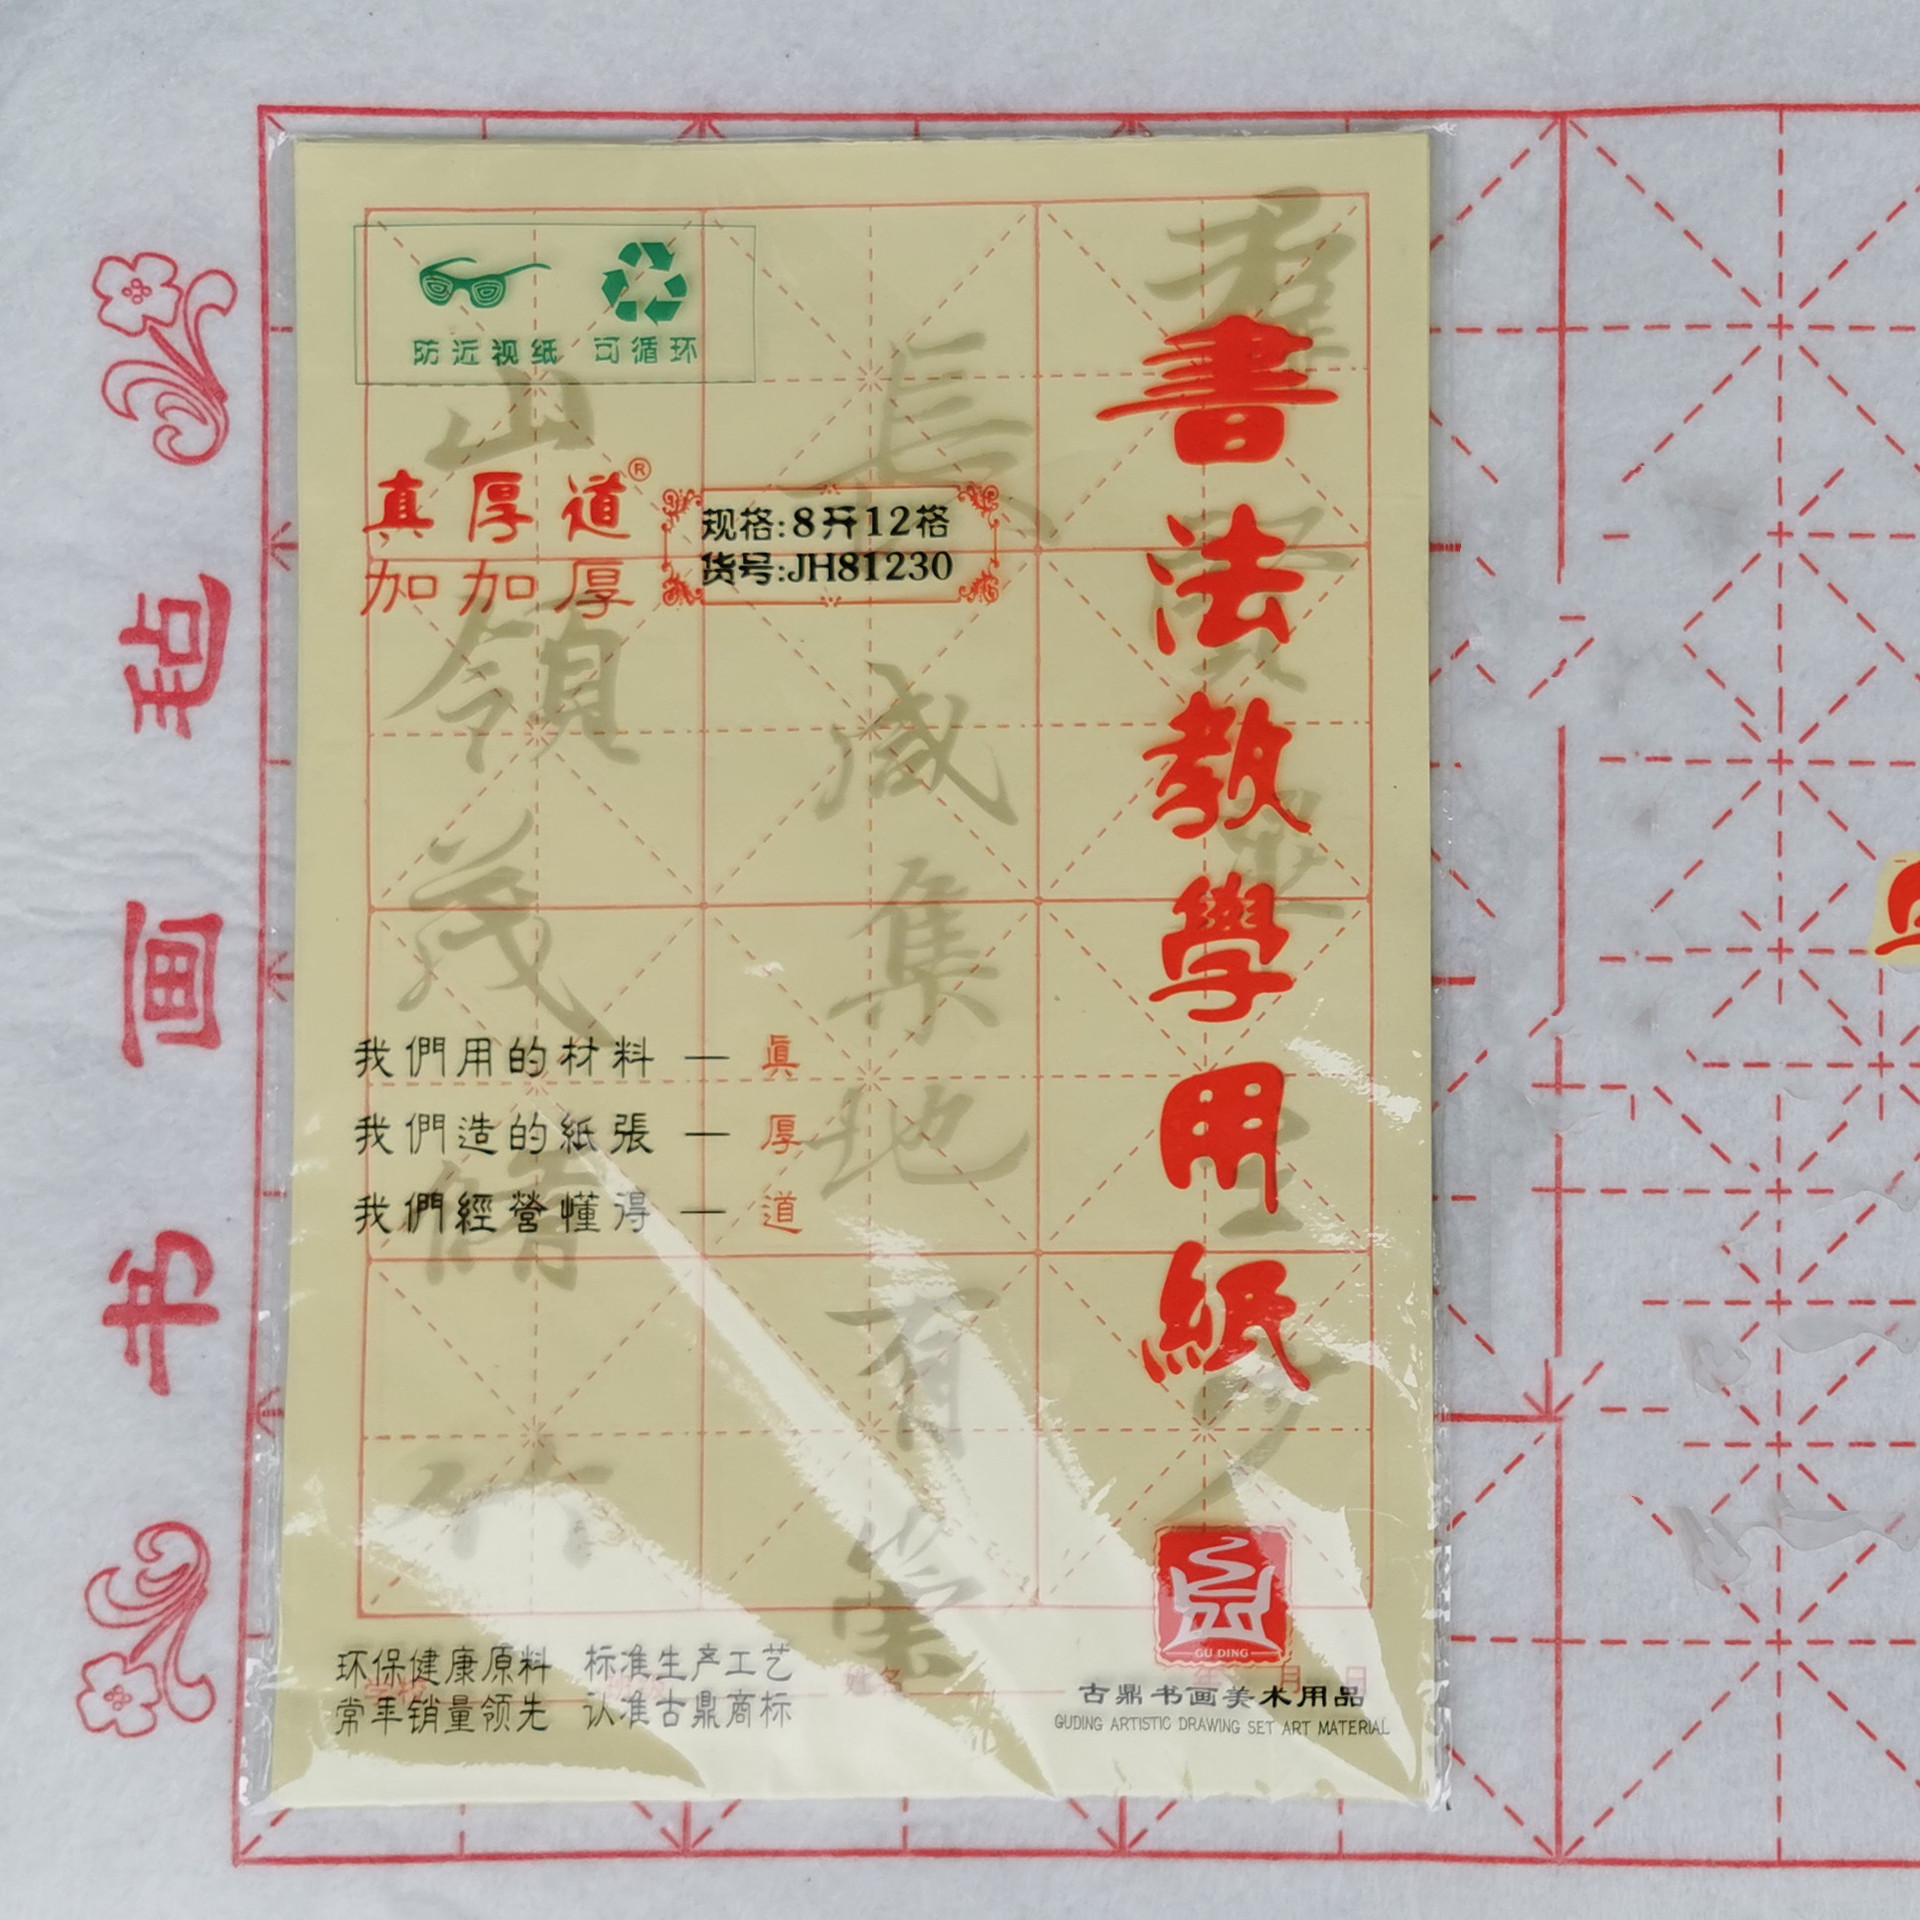 防近视纸 可循环
真厚道®
加加厚
规格:8开12格
货号:JH81230
書法教學用紙
群賢畢至少
長咸集地有崇
山領茂脩竹
我們用的材料 — 眞
我們造的紙張 — 厚
我們經營懂得 — 道
环保健康原料 标准生产工艺
常年销量领先 认准古鼎商标
姓名
年 月 日
GU DING
古鼎书画美术用品
GUDING ARTISTIC DRAWING SET ART MATERIAL
书画毡